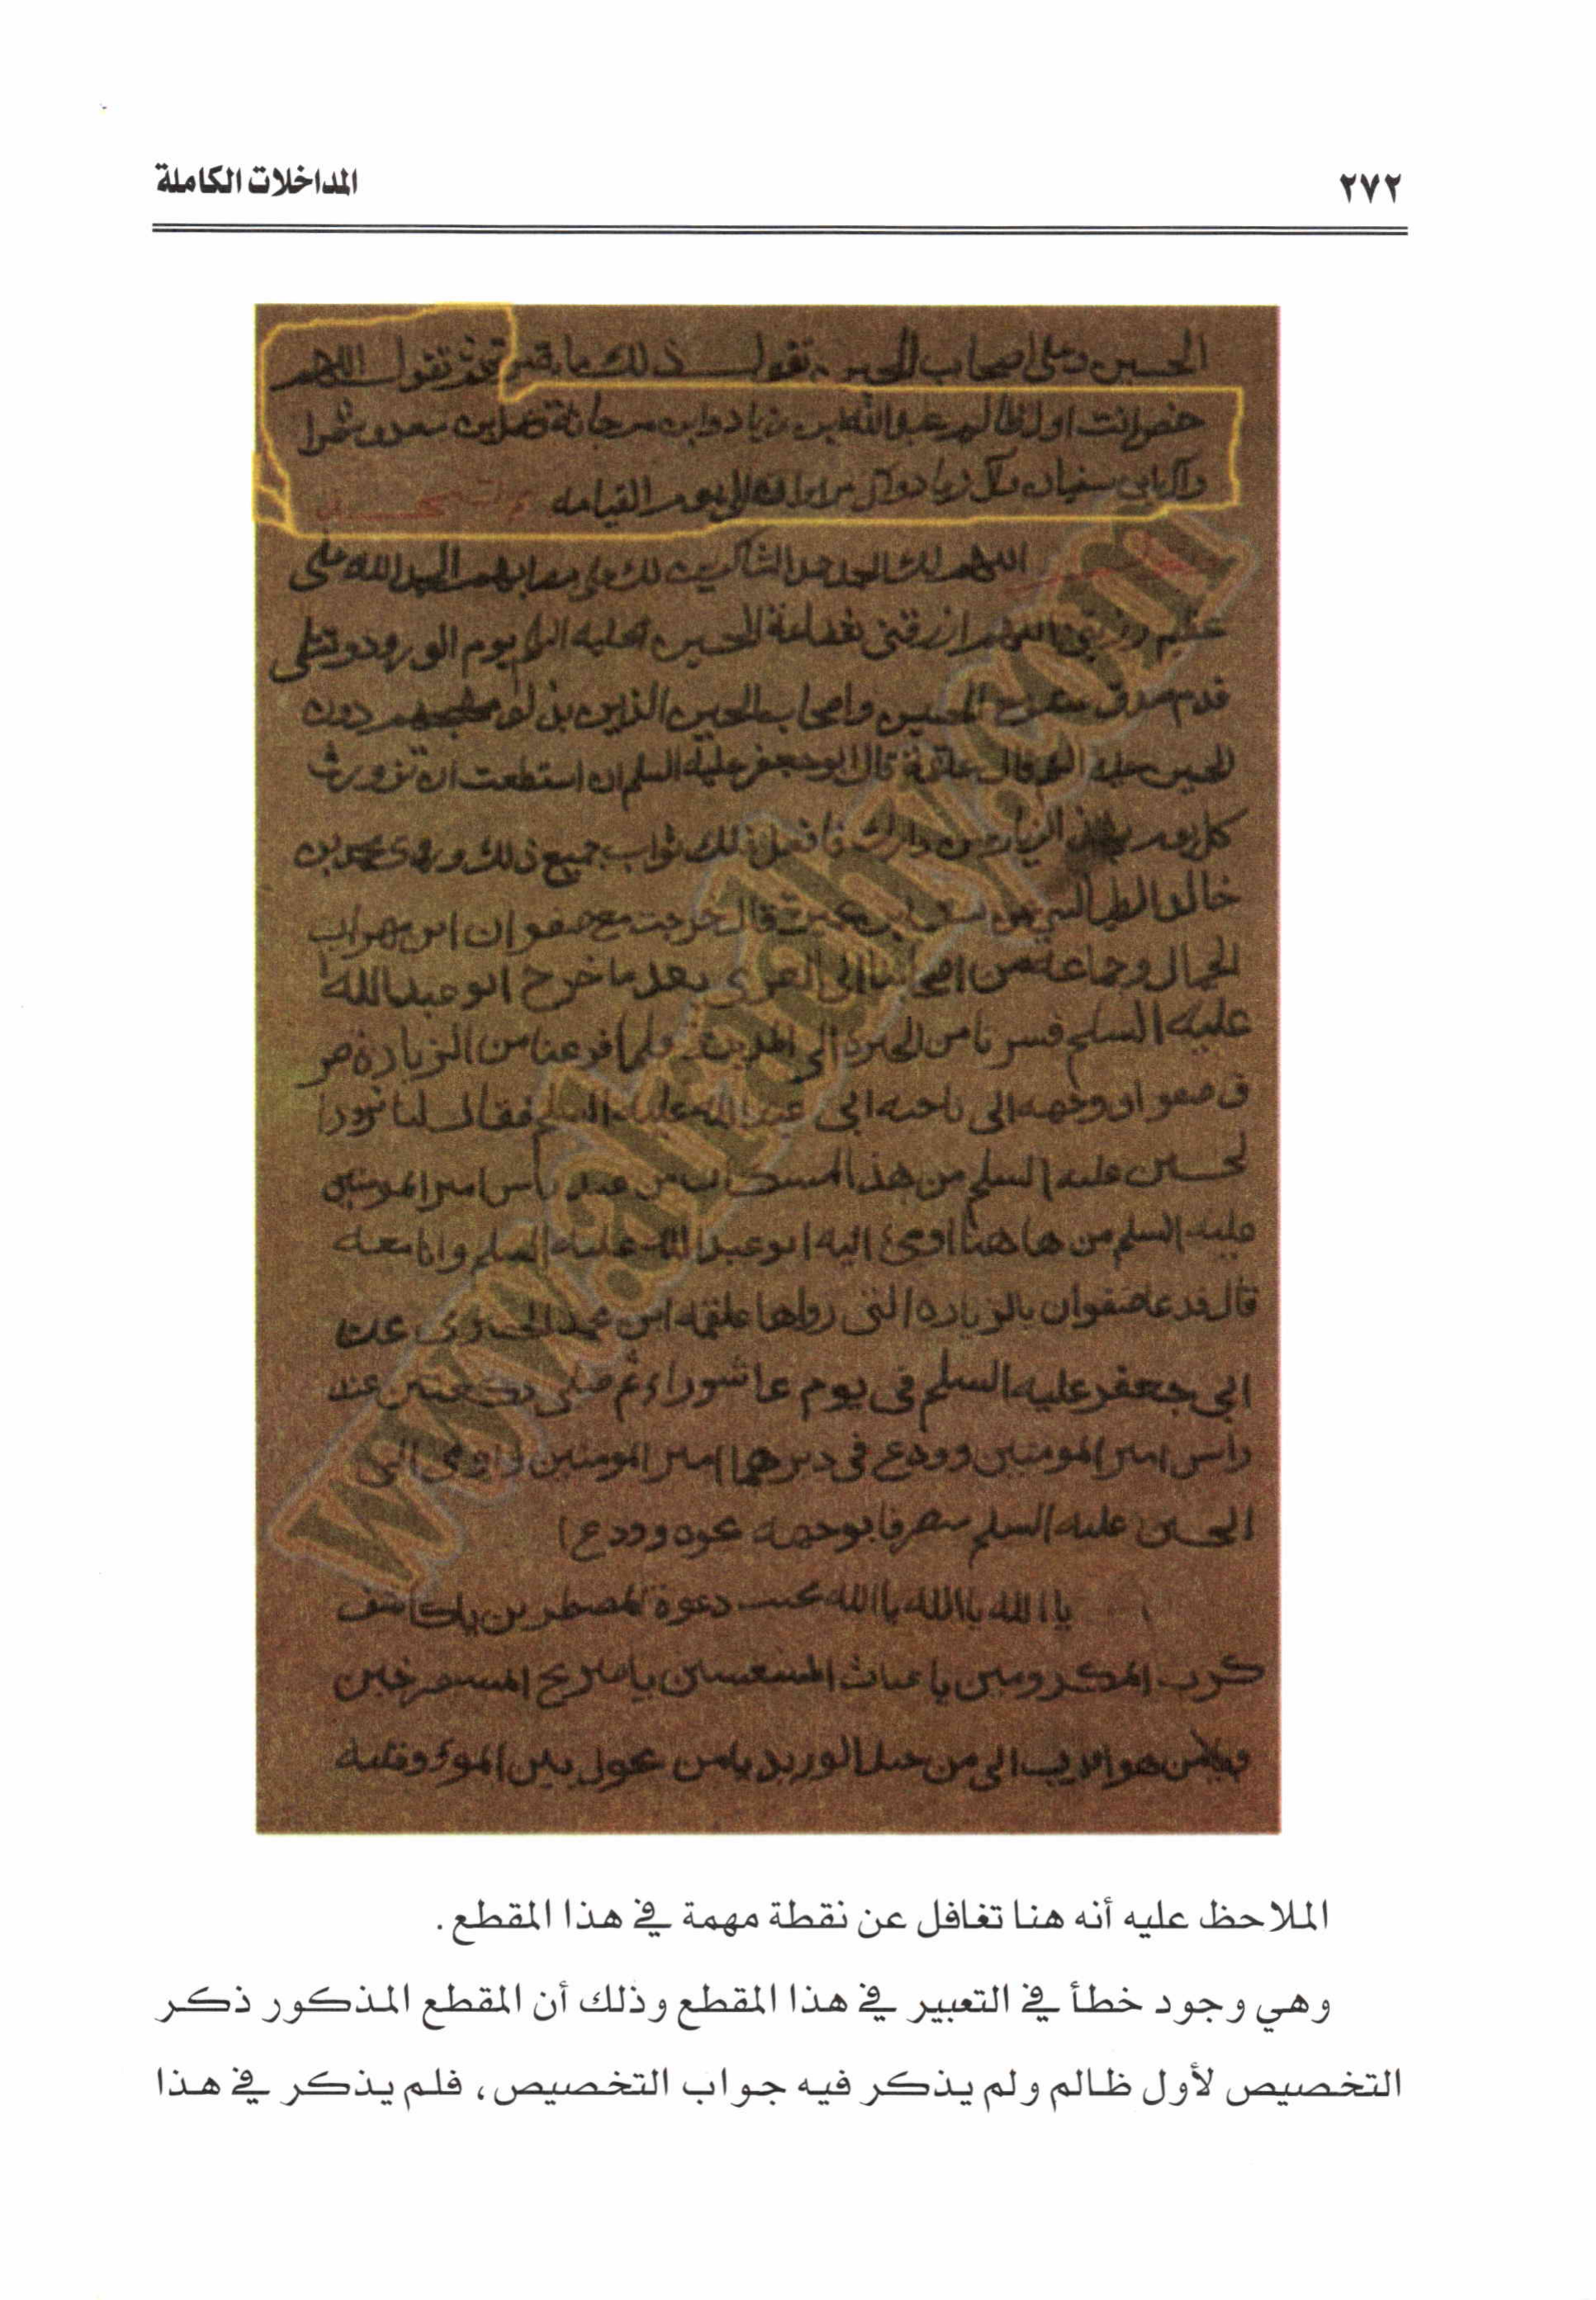 ٢٧٢
المداخلات الكاملة
الحسين وعلى اصحاب الحسين تقول ذلك مائة تقول اللهم
خص انت اول ظالم عبدالله بن زياد وابن مرجانة وعمر بن سعد وشمرا
وآل ابي سفيان وآل زياد وآل مروان الى يوم القيامه
اللهم لك الحمد حمد الشاكرين لك على مصابهم الحمد لله على
عظيم اللهم ارزقني شفاعة الحسين عليه يوم الورود وثبت لي
قدم صدق مع الحسين واصحاب الحسين الذين بذلوا مهجهم دون
الحسين عليه قال علقمة قال ابو جعفر عليه السلم ان استطعت ان تزوره
كل يوم بهذه الزيارة من دارك فافعل ذلك ثواب جميع ذلك وروى محمد بن
خالد الطيالسي عن سيف ابن عميرة قال خرجت مع صفوان ابن مهران
الجمال وجماعة من اصحابنا الى الغرى بعد ما خرج ابو عبدالله
عليه السلم فسرنا من الحيرة الى المدينة فلما فرغنا من الزيارة صر
ف صفوان وجهه الى ناحيه ابى عبدالله عليه السلم فقال لنا تزوروا
لحسين عليه السلم من هذا المكان من عند رأس امير المومنين
عليه السلم من هاهنا اومئ اليه ابو عبدالله عليه السلم وانا معه
قال فدعا صفوان بالزياره التى رواها علقمه ابن محمد الحضرمى عن
ابي جعفر عليه السلم فى يوم عاشوراء ثم صلى ركعتين عند
راس امير المومنين وودع فى دبرهما امير المومنين واومى الى
الحسين عليه السلم منصرفا بوجهه نحوه وودع
يا الله يا الله يا الله مجيب دعوة المضطرين يا كاشف
كرب المكروبين يا غياث المستغيثين يا صريخ المستصرخين
ويا من هو اقرب الى من حبل الوريد يا من يحول بين المرء وقلبه
www.alradhy.com
الملاحظ عليه أنه هنا تغافل عن نقطة مهمة في هذا المقطع.
وهي وجود خطأ في التعبير في هذا المقطع وذلك أن المقطع المذكور ذكر
التخصيص لأول ظالم ولم يذكر فيه جواب التخصيص، فلم يذكر في هذا